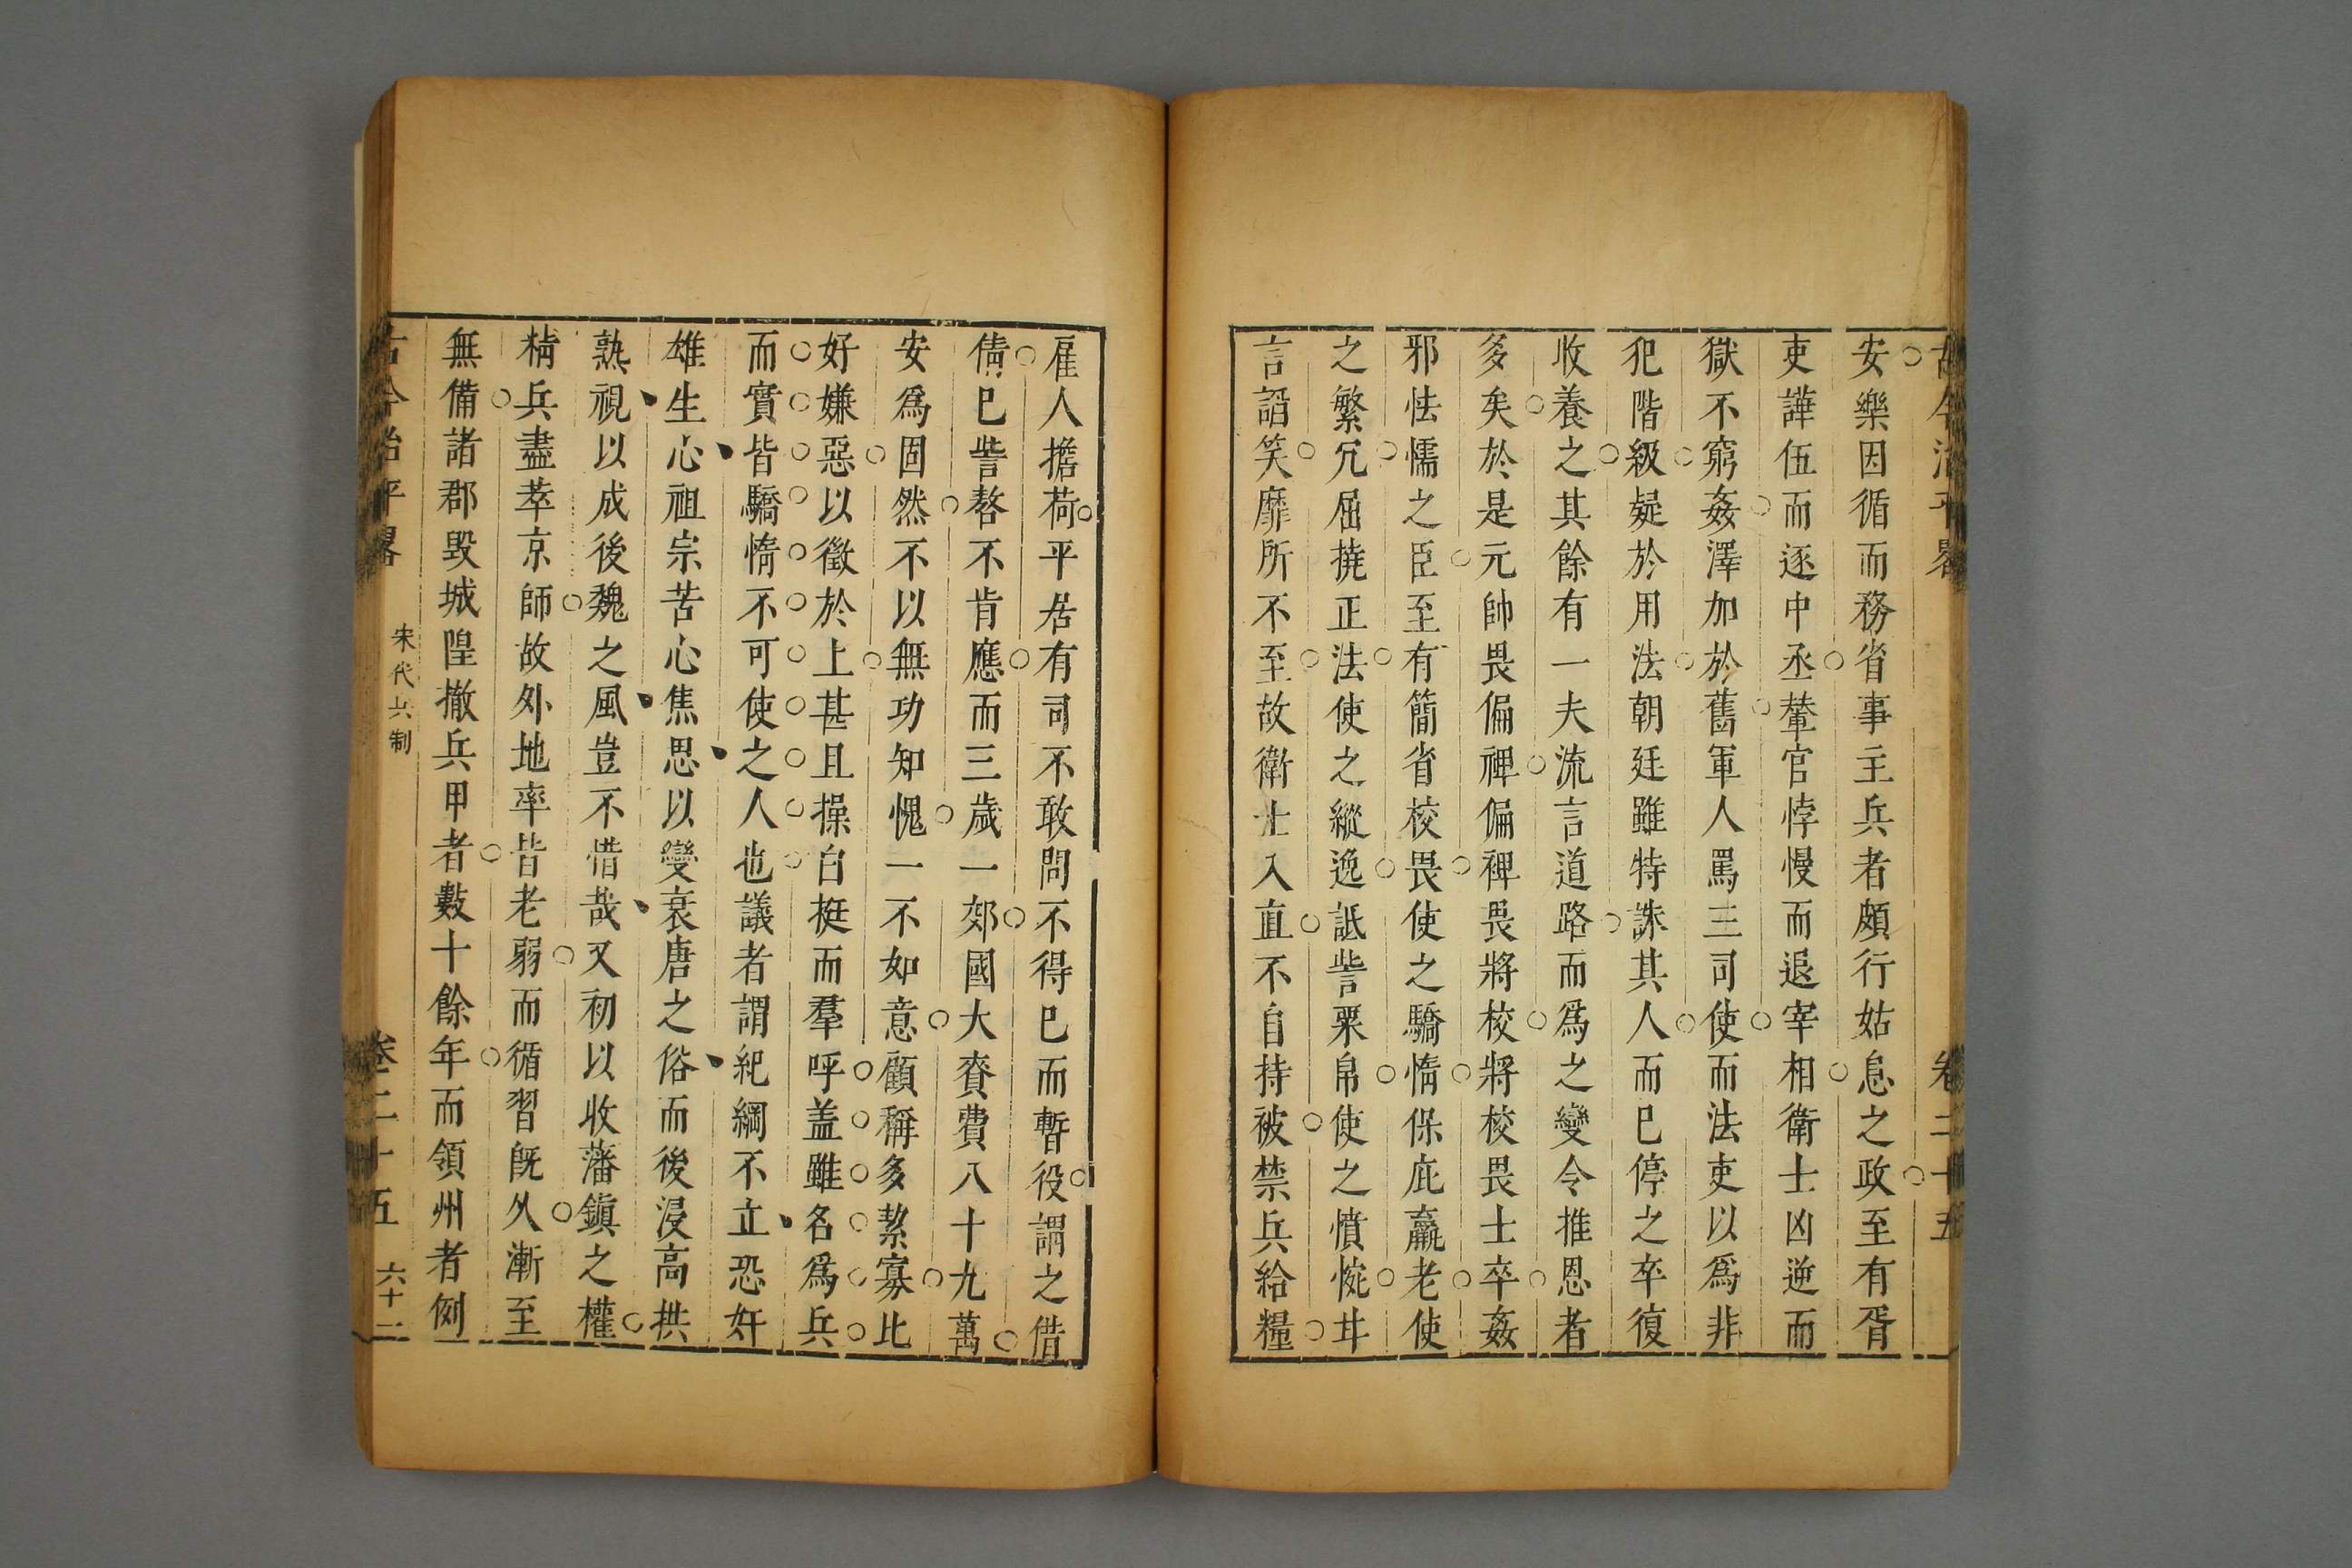 古今治平畧 卷二十五
安樂因循而務省事主兵者頗行姑息之政至有胥
吏譁伍而逐中丞輦官悖慢而退宰相衛士凶逆而
獄不窮姦澤加於舊軍人罵三司使而法吏以爲非
犯階級疑於用法朝廷雖特誅其人而已停之卒復
收養之其餘有一夫流言道路而爲之變令推恩者
多矣於是元帥畏偏裨偏裨畏將校將校畏士卒姦
邪怯懦之臣至有簡省校畏使之驕惰保庇羸老使
之繁冗屈撓正法使之縱逸詆訾粟帛使之憤惋甘
言諂笑靡所不至故衛士入直不自持被禁兵給糧
雇人擔荷平居有司不敢問不得已而暫役謂之借
倩已訾謷不肯應而三歲一郊國大賚費八十九萬
安爲固然不以無功知愧一不如意顧稱多絜寡比
好嫌惡以徵於上甚且操白挺而羣呼盖雖名爲兵
而實皆驕惰不可使之人也議者謂紀綱不立恐奸
雄生心祖宗苦心焦思以變衰唐之俗而後浸高拱
熟視以成後魏之風豈不惜哉又初以收藩鎭之權
精兵盡萃京師故外地率皆老弱而循習旣久漸至
無備諸郡毀城隍撤兵甲者數十餘年而領州者例
古今治平畧 宋代兵制 卷二十五 六十二